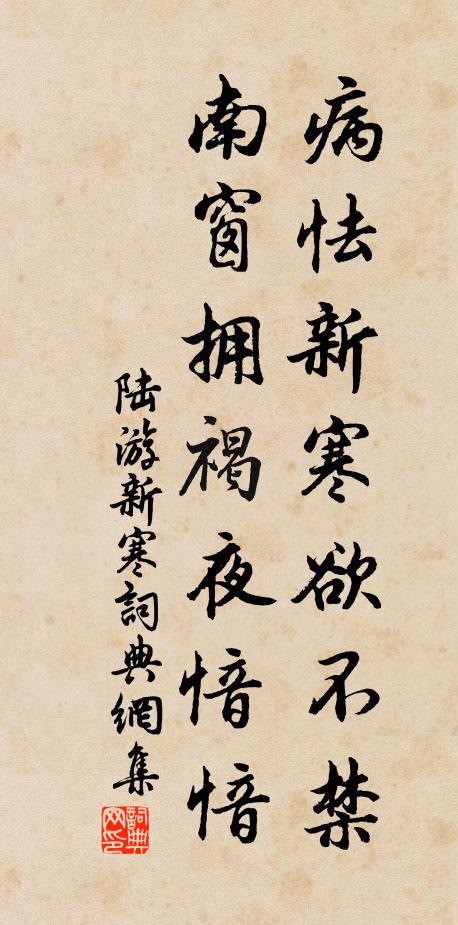 病怯新寒欲不禁
南窗拥褐夜愔愔
陆游新寒詞典網集
詞典网印